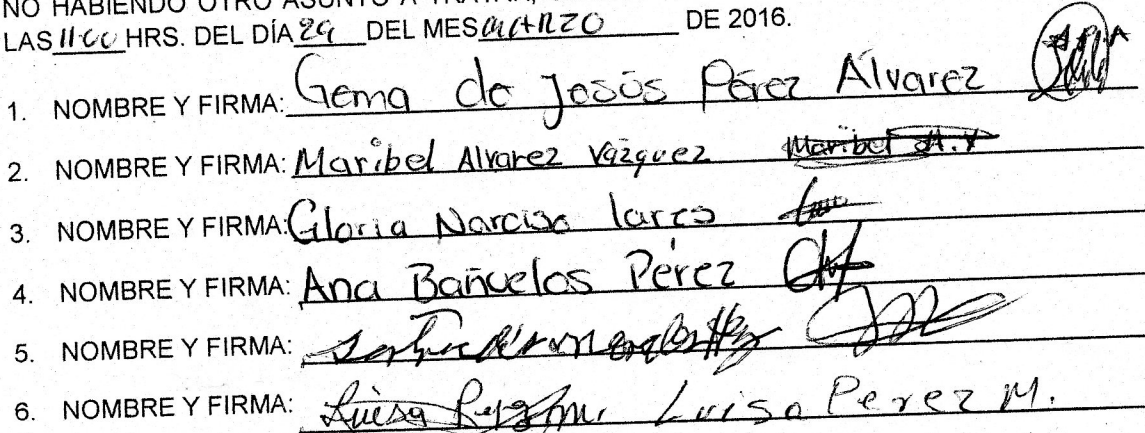 NO HABIENDO OTRO ASUNTO A TRATAR,
LAS 11:00 HRS. DEL DÍA 29 DEL MES MARZO DE 2016.
1. NOMBRE Y FIRMA: Gema de Jesús Pérez Álvarez
2. NOMBRE Y FIRMA: Maribel Alvarez Vázquez Maribel A.V
3. NOMBRE Y FIRMA: Gloria Narciso lares
4. NOMBRE Y FIRMA: Ana Bañuelos Pérez
5. NOMBRE Y FIRMA:
6. NOMBRE Y FIRMA: Luisa Perez M.